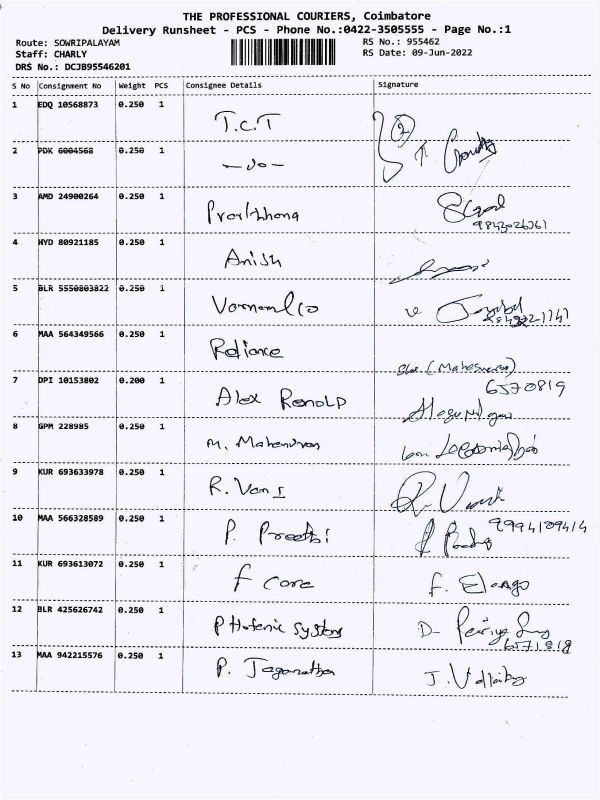 THE PROFESSIONAL COURIERS, Coimbatore
Delivery Runsheet - PCS - Phone No.:0422-3505555 - Page No.:1
Route: SOWRIPALAYAM
RS No.: 955462
Staff: CHARLY
RS Date: 09-Jun-2022
DRS No.: DCJB95546201
S No Consignment No Weight PCS Consignee Details Signature
1 EDQ 10568873 0.250 1 T.C.T
2 PDK 6004568 0.250 1 -do-
3 AMD 24900264 0.250 1
4 HYD 80921185 0.250 1 Anish
5 BLR 5550803822 0.250 1
6 MAA 564349566 0.250 1 Reliance
7 DPI 10153802 0.200 1 Alex Renold
6570819
8 GPM 228985 0.250 1 M. Mahendran
9 KUR 693633978 0.250 1 R. Vani
10 MAA 566328589 0.250 1 P. Preethi
9994109414
11 KUR 693613072 0.250 1 f care F. Elango
12 BLR 425626742 0.250 1 Systems
6571818
13 MAA 942215576 0.250 1 P. Jaganathan